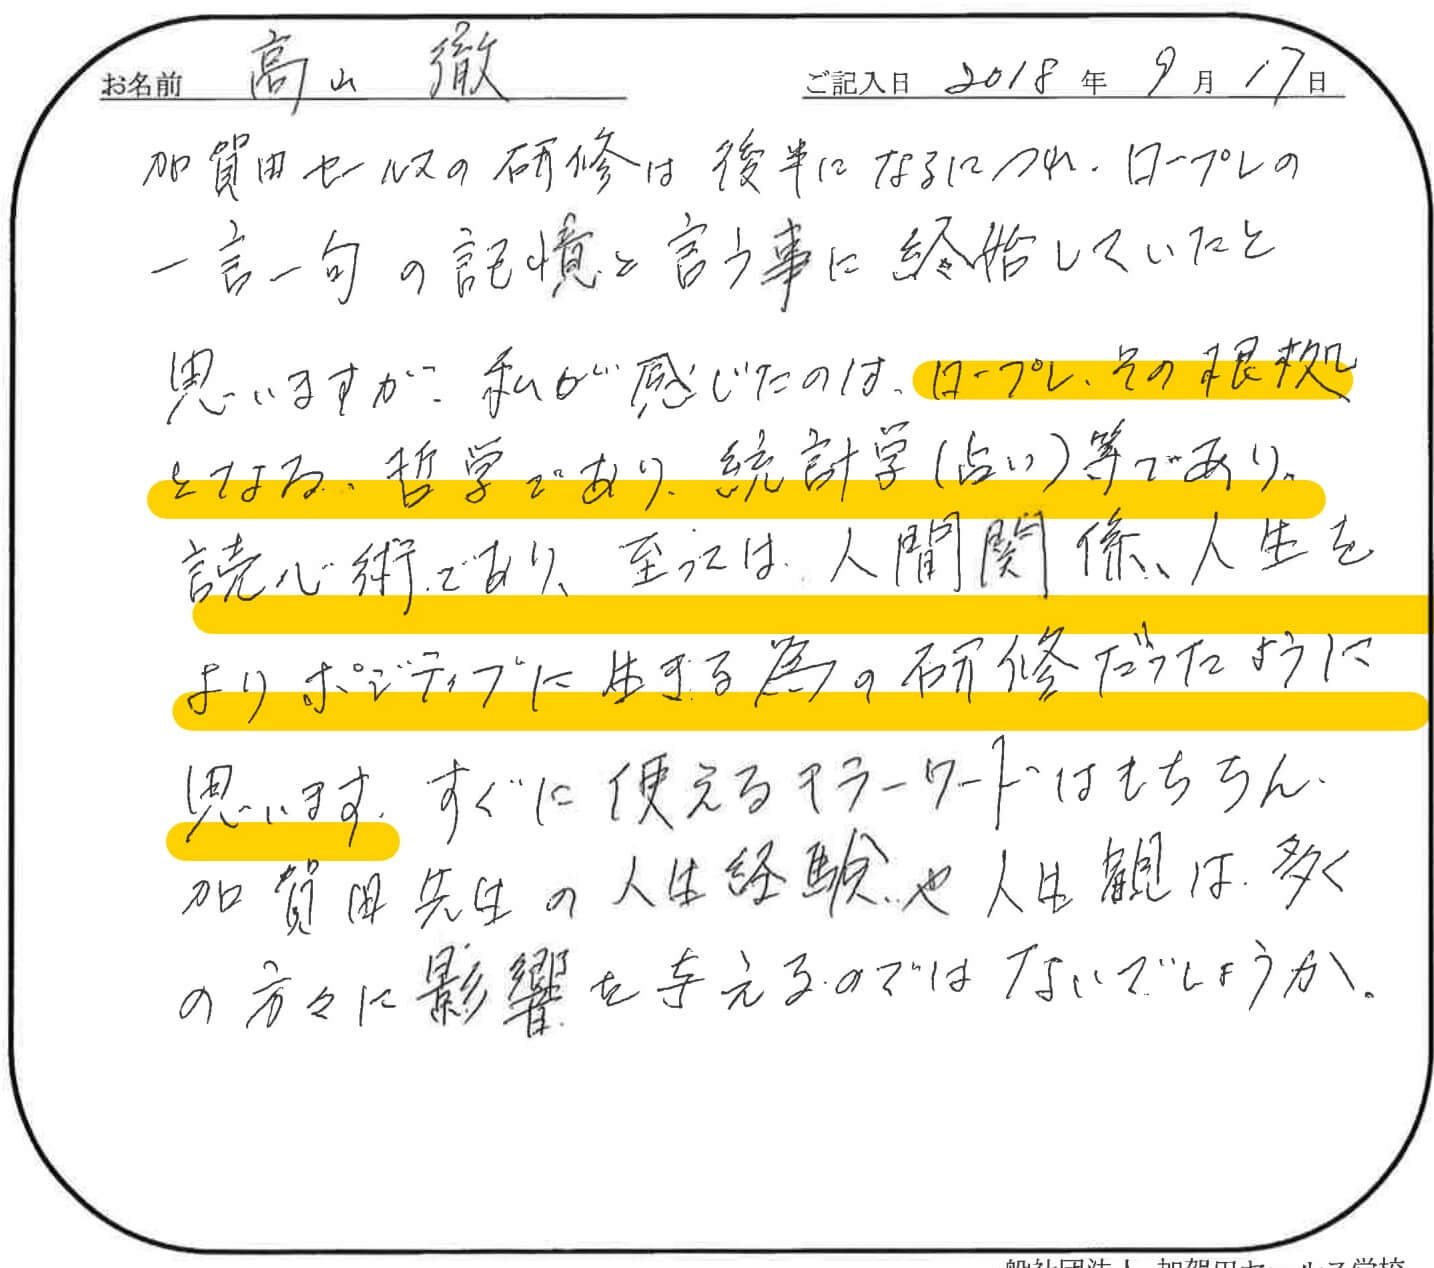 お名前 高山 徹 ご記入日 2018年 9月 17日
加賀田セールスの研修は後半になるにつれ、ロープレの
一言一句の記憶と言う事に終始していたと
思いますが、私が感じたのは、ロープレ、その根拠
となる、哲学であり、統計学(占い)等であり、
読心術であり、至っては、人間関係、人生を
よりポジティブに生きる為の研修だったように
思います。すぐに使えるキラーワードはもちろん、
加賀田先生の人生経験や人生観は、多く
の方々に影響を与えるのではないでしょうか。
一般社団法人 加賀田セールス学校